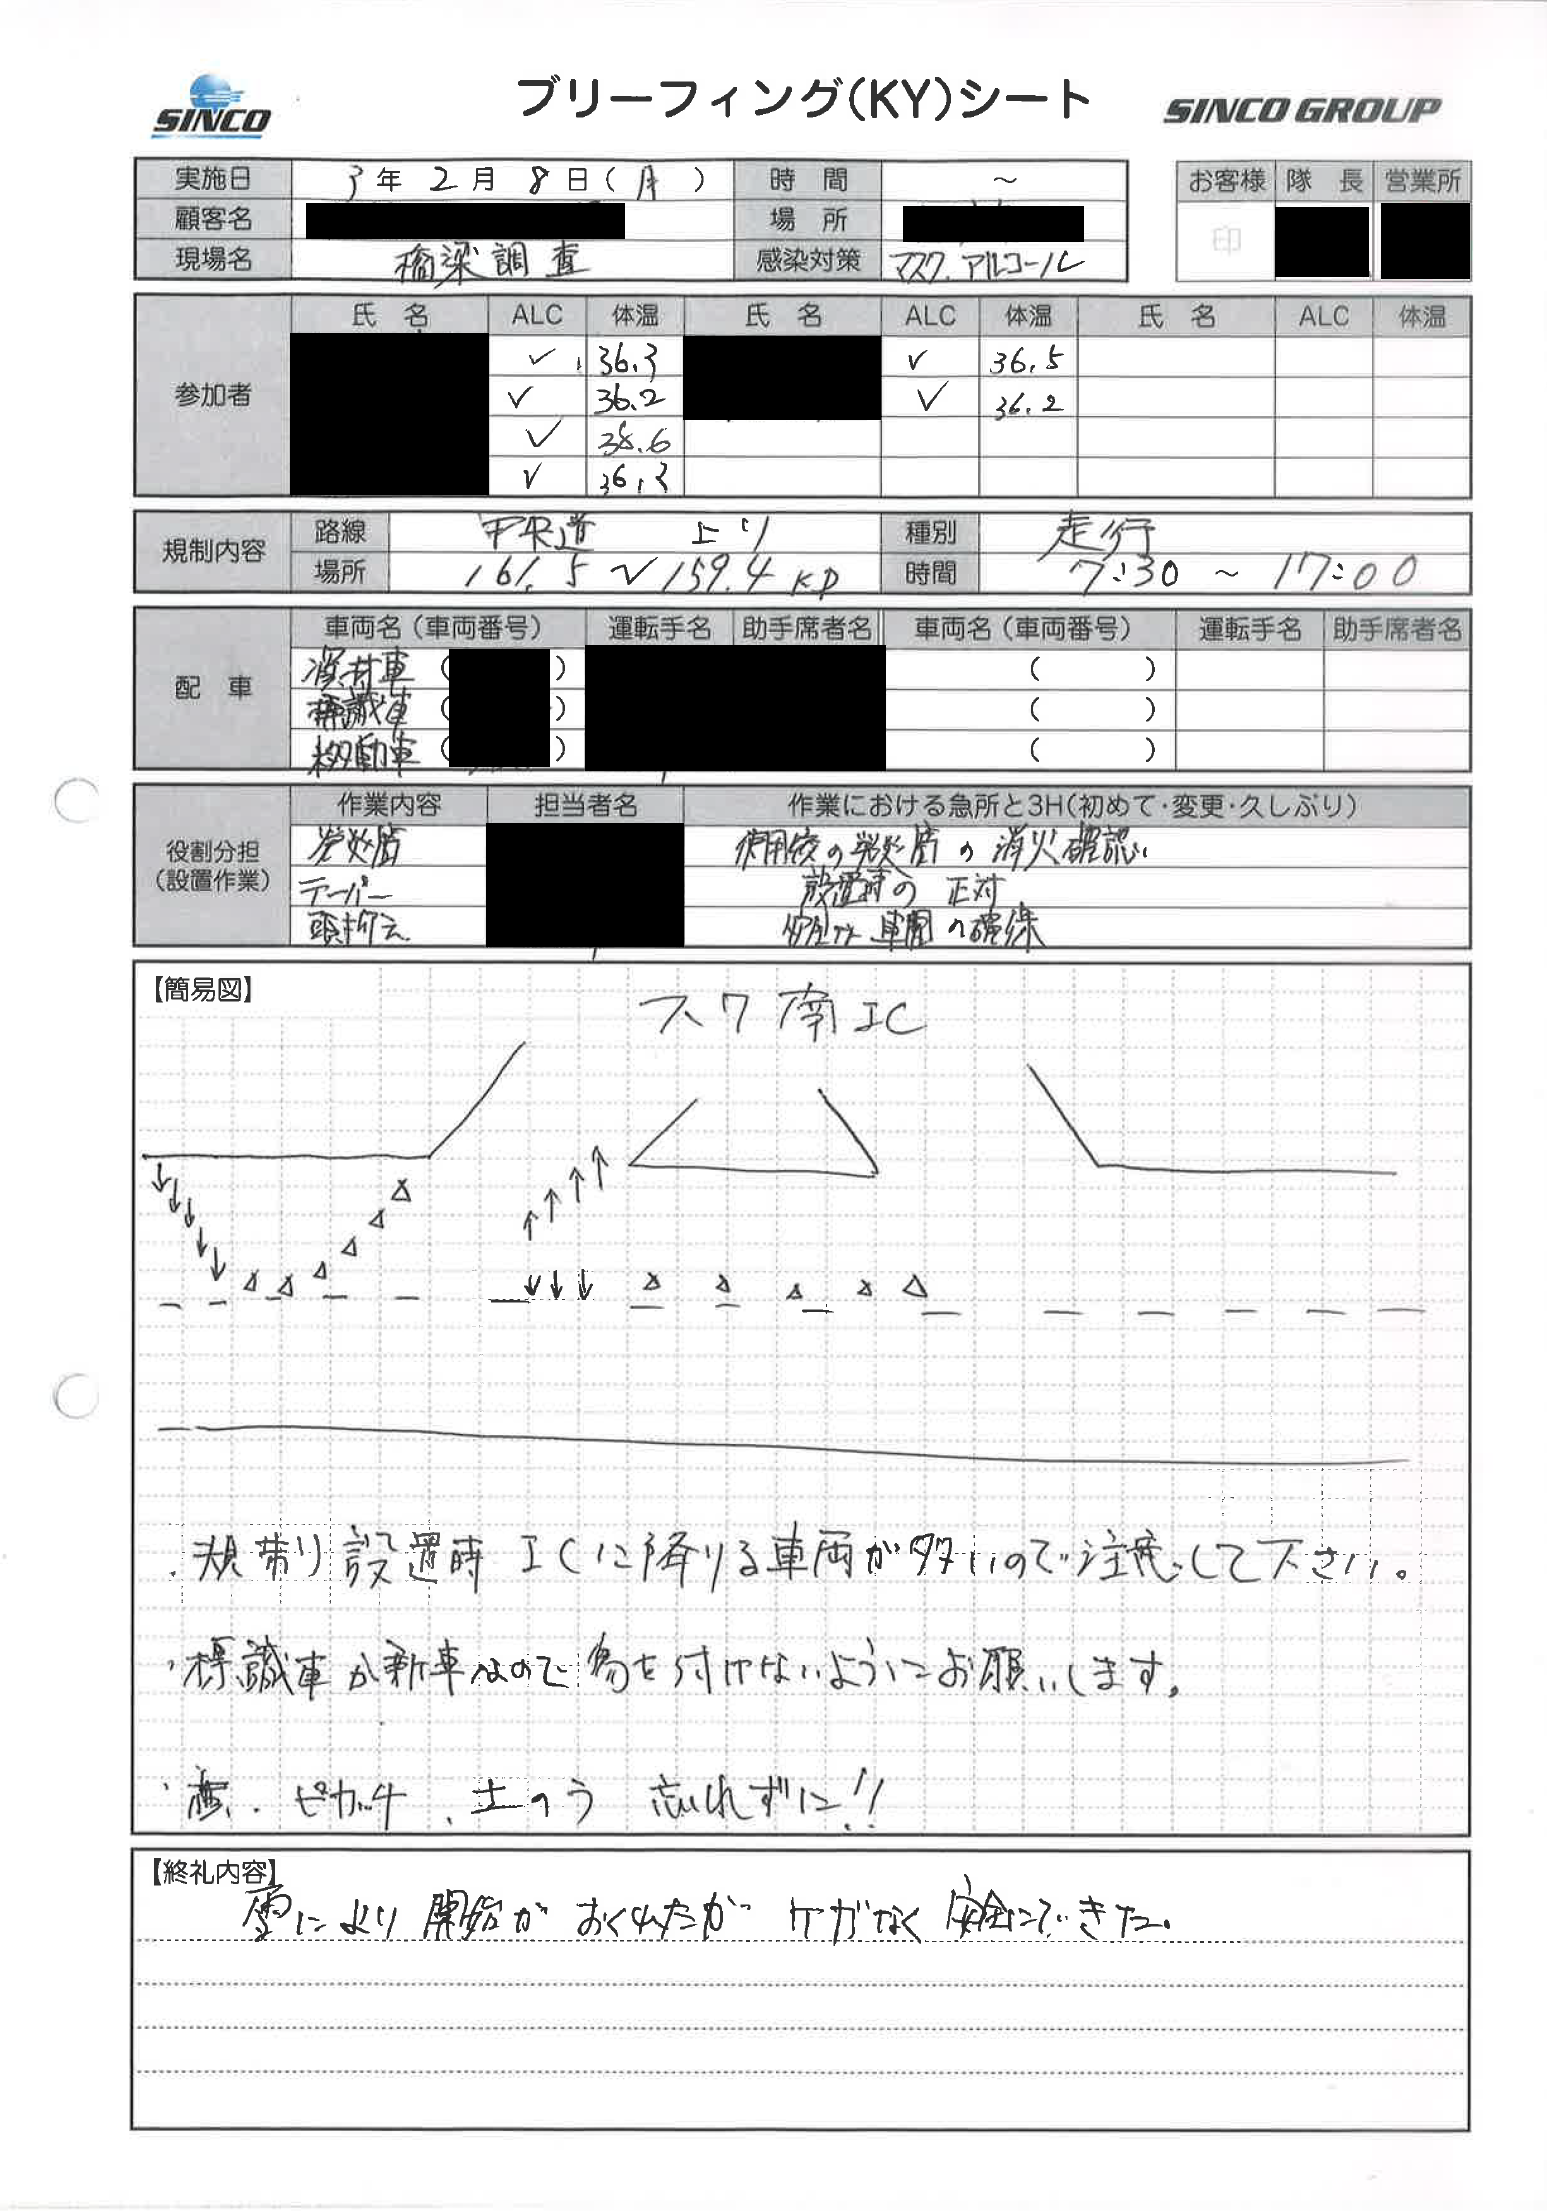 SINCO
ブリーフィング(KY)シート
SINCO GROUP
実施日 3年 2月 8日(月) 時間 ～
お客様 隊長 営業所
顧客名 場所
印
現場名 橋梁調査 感染対策 マスク.アルコール
参加者
氏名 ALC 体温 氏名 ALC 体温 氏名 ALC 体温
✓ 36.3 ✓ 36.5
✓ 36.2 ✓ 36.2
✓ 36.6
✓ 36.3
規制内容
路線 中央道 上り 種別 走行
場所 161.5 ～ 159.4 KP 時間 7:30 ～ 17:00
配車
車両名(車両番号) 運転手名 助手席者名 車両名(車両番号) 運転手名 助手席者名
資材車( ) ( )
標識車( ) ( )
移動車( ) ( )
役割分担
(設置作業)
作業内容 担当者名 作業における急所と3H(初めて・変更・久しぶり)
発炎筒 使用後の発炎筒の消火確認
テーパー 設置時の正対
頭押え 安全な車間の確保
【簡易図】
スワ南IC
・規制設置時ICに降りる車両が多いので注意して下さい。
・標識車が新車なので傷を付けないようにお願いします。
ピカッチ、土のう 忘れずに!!
【終礼内容】
雪により開始がおくれたがケガなく安全にできた。